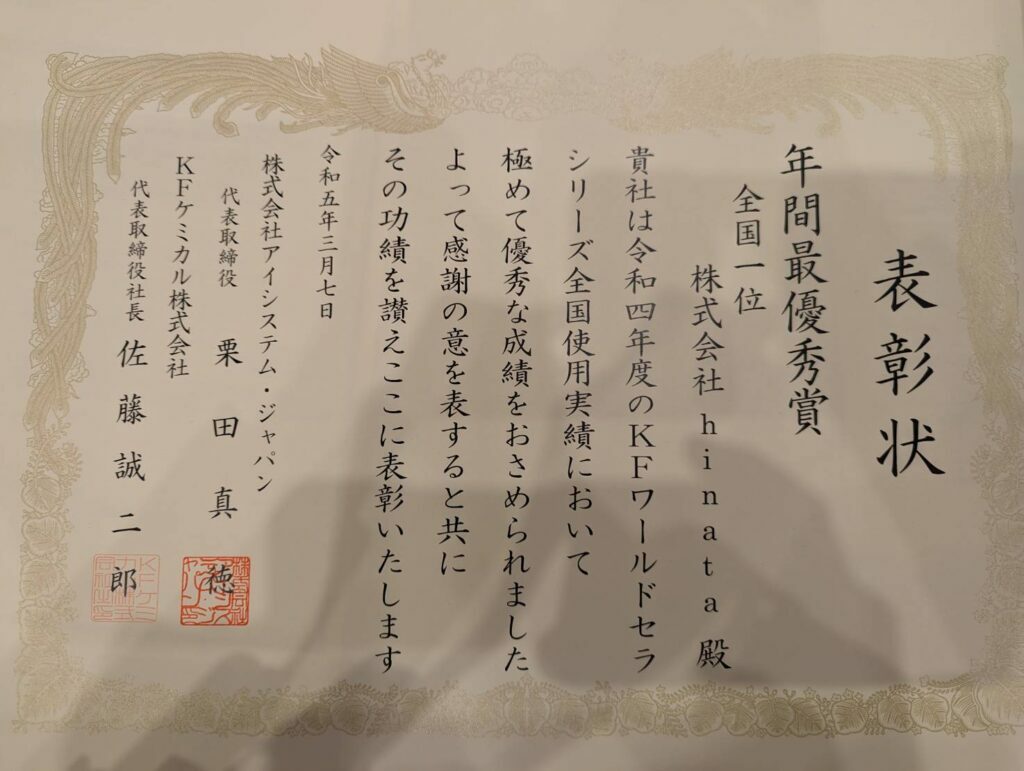 表彰状
年間最優秀賞
全国一位
株式会社hinata殿
貴社は令和四年度のKFワールドセラ
シリーズ全国使用実績において
極めて優秀な成績をおさめられました
よって感謝の意を表すると共に
その功績を讃えここに表彰いたします
令和五年三月七日
株式会社アイシステム・ジャパン
代表取締役 栗田真徳
KFケミカル株式会社
代表取締役社長 佐藤誠二郎